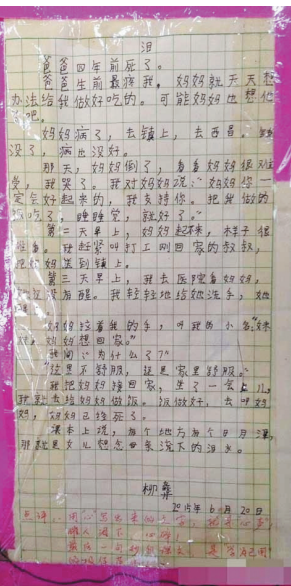 泪
爸爸四年前死了。
爸爸生前最疼我,妈妈就天天想
办法给我做好吃的。可能妈妈也想他
了吧。
妈妈病了,去镇上,去西昌。钱
没了,病也没好。
那天,妈妈倒了,看看妈妈很难
受,我哭了。我对妈妈说:“妈妈你一
定会好起来的,我支持你。把我做的
饭吃了,睡睡觉,就好了。”
第二天早上,妈妈起不来,样子很
难看。我赶紧叫打工刚回家的叔叔,
把妈妈送到镇上。
第三天早上,我去医院看妈妈,
她还没有醒。我轻轻地给她洗手,她
醒了。
妈妈拉着我的手,叫我的小名:“妹
妹,妈妈想回家。”
我问:“为什么了?”
“这里不舒服,还是家里舒服。”
我把妈妈接回家,坐了一会儿,
我就去给妈妈做饭。饭做好了,去叫妈
妈,妈妈已经死了。
课本上说,有个地方有个日月潭,
那就是女儿想念母亲流下的泪水。
柳彝
2015年6月20日
点评:用心写出来的文字,